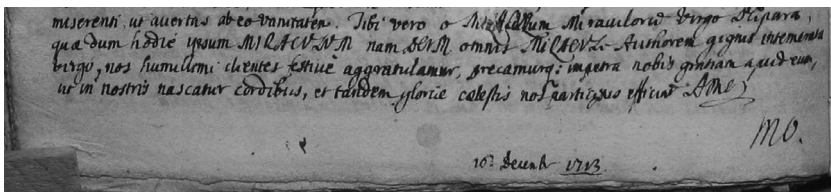 miserenti ut avertas ab eo vanitatem. Tibi vero o Miraculorū Virgo Deipara,
quæ dum hodie ipsum MIRACULUM nam DEUM omnis MIRACULI Authorem gignis intemerata
virgo, nos humillimi clientes festivè aggratulamur, precamurq; impetra nobis gratiam apud eum,
ut in nostris nascatur cordibus, et tandem gloriæ cœlestis nos participes efficiat Amē
MO.
16 Decemb 1713